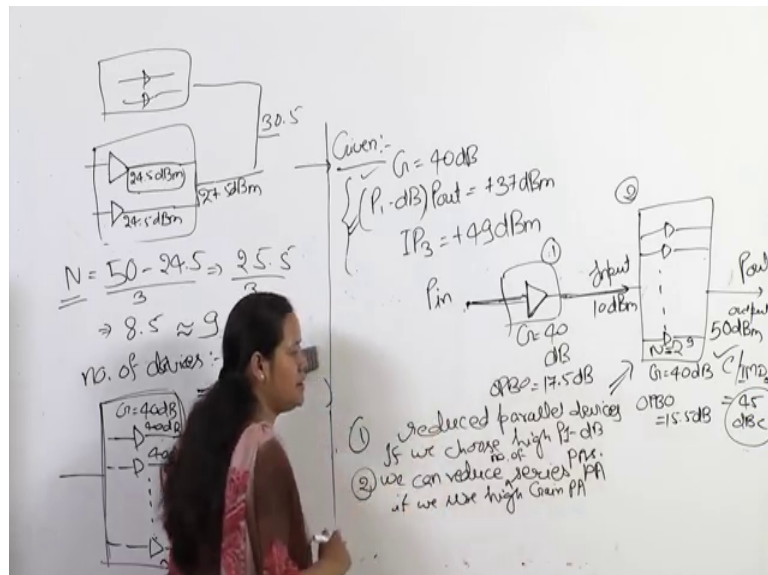 30.5
24.5dBm
27.5dBm
24.5dBm
N = 50-24.5/3 ⇒ 25.5/3
⇒ 8.5 ≈ 9
no. of devices:-
G=40dB
40dB
Given:-
G = 40dB
(P1-dB) Pout = +37dBm
IP3 = +49dBm
①
Pin
G=40
dB
OPBO = 17.5dB
Input
10dBm
②
N=2⁹
G=40dB
OPBO
=15.5dB
Pout
output
50dBm
C/IMD3
= 45
dBc
① reduced parallel devices
If we choose high P1-dB
PAs.
② we can reduce no. of series PA
if we use high Gain PA